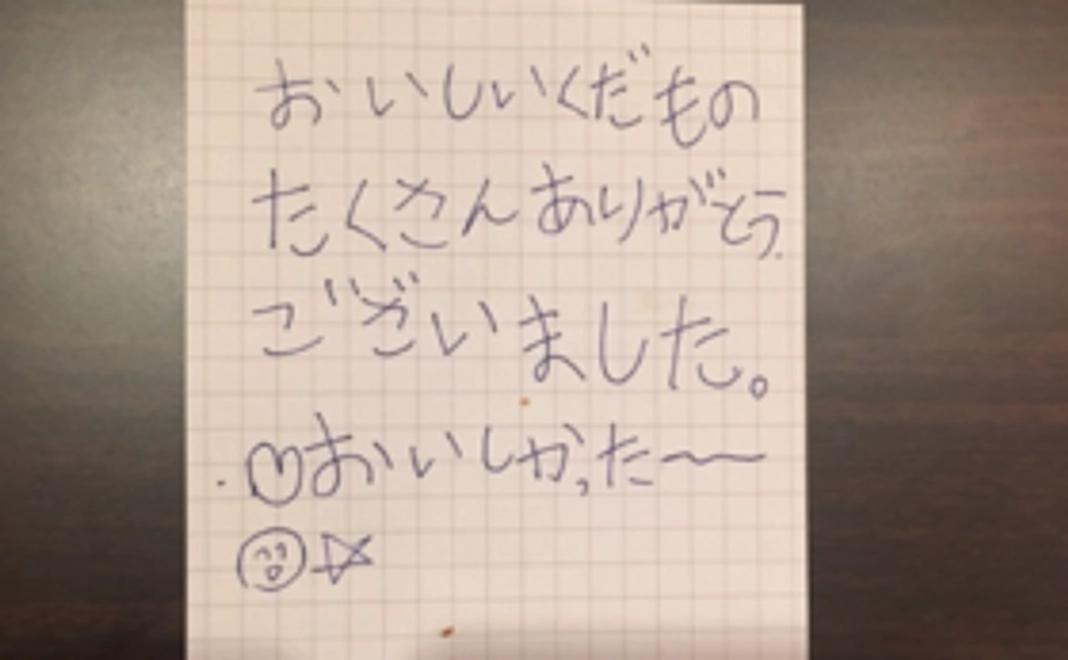 おいしいくだもの
たくさんありがとう
ございました。
♡おいしかった〜